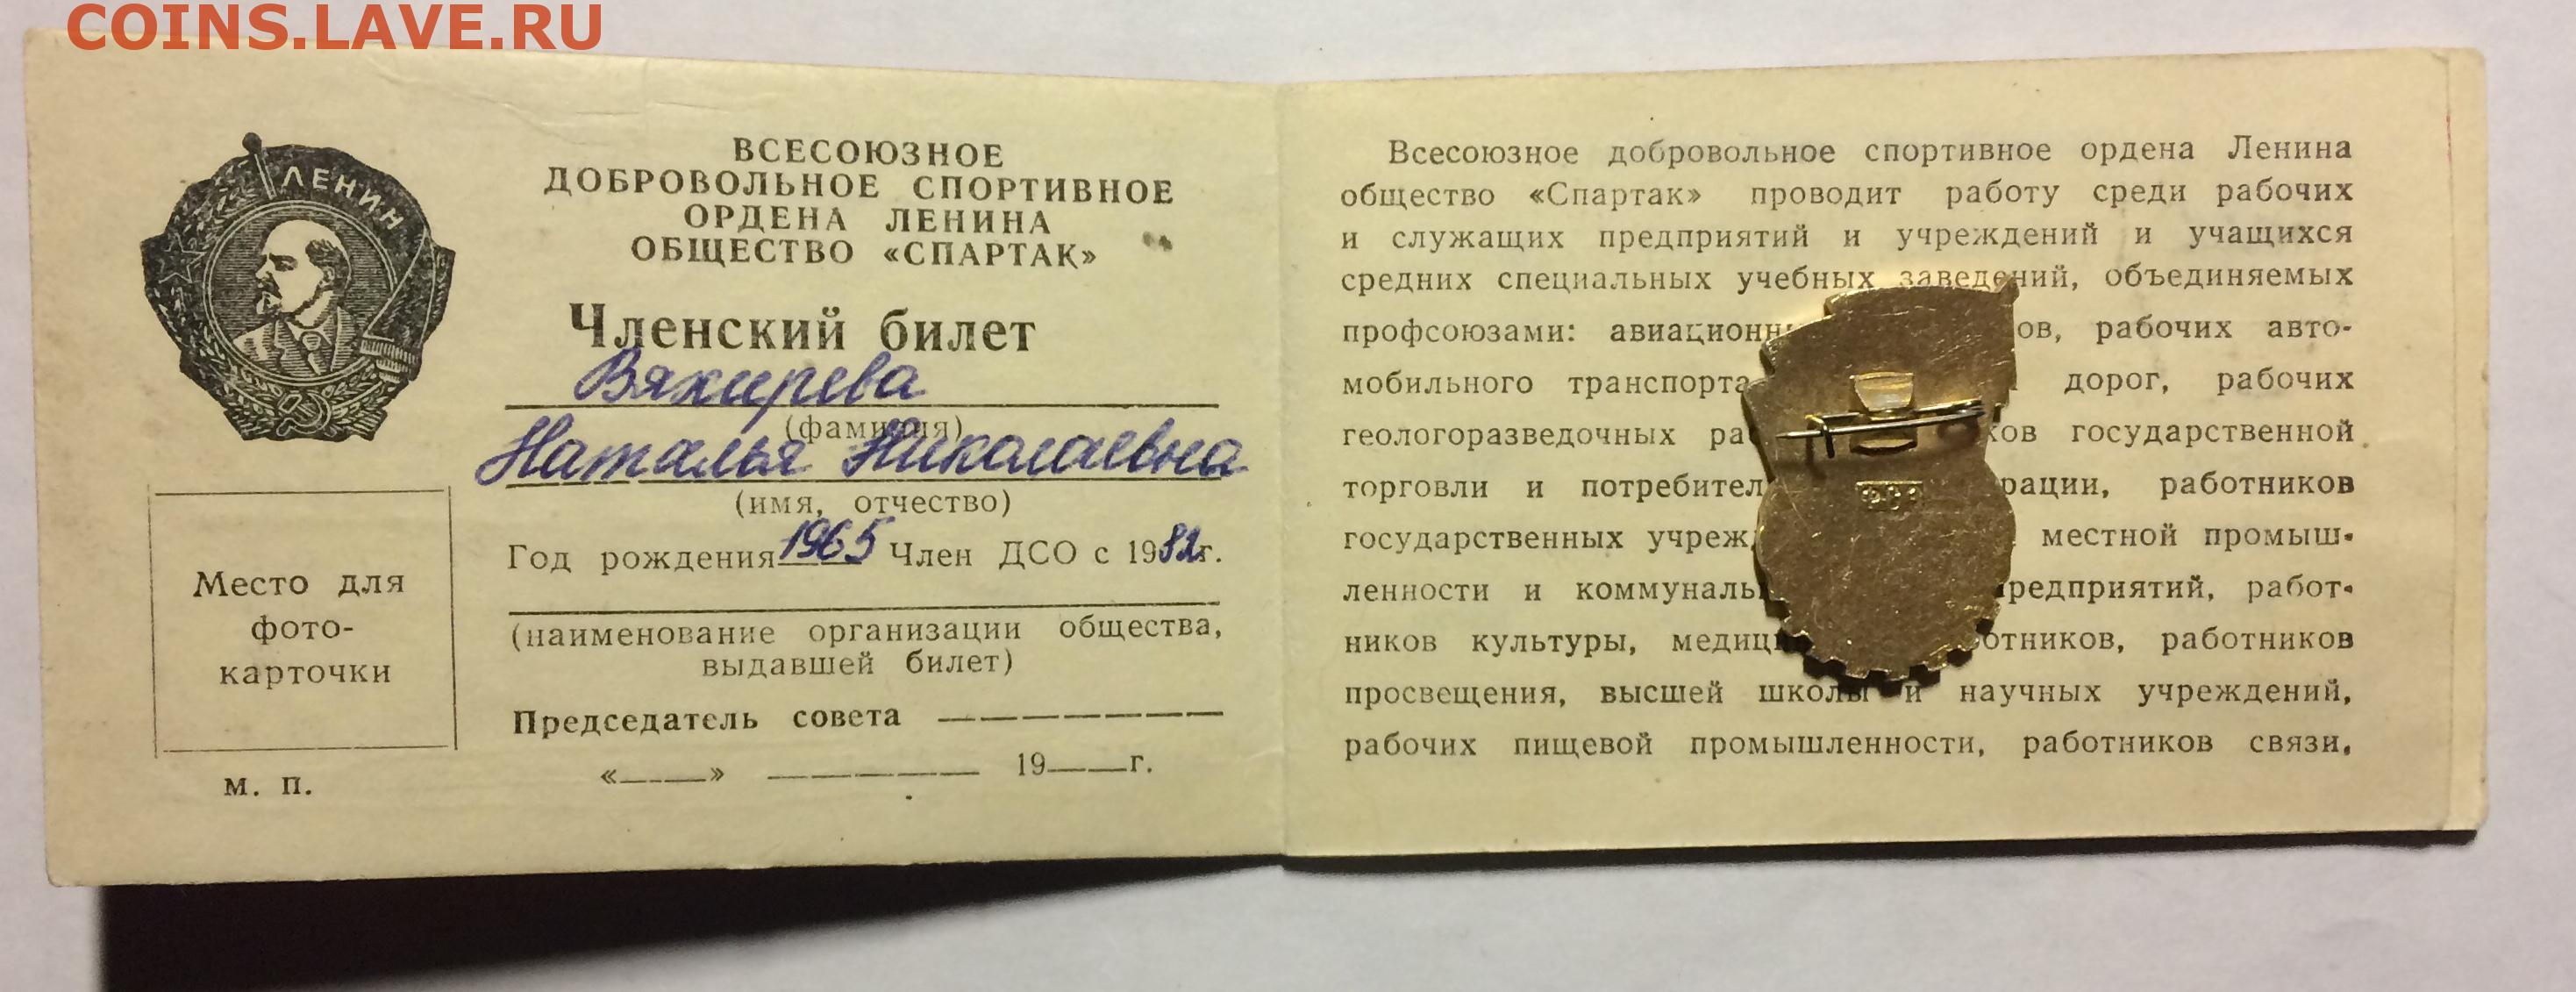 COINS.LAVE.RU
ЛЕНИН
ВСЕСОЮЗНОЕ
ДОБРОВОЛЬНОЕ СПОРТИВНОЕ
ОРДЕНА ЛЕНИНА
ОБЩЕСТВО «СПАРТАК»
Членский билет
Вяхирева
(фамилия)
Наталья Николаевна
(имя, отчество)
Год рождения 1965 Член ДСО с 1982г.
(наименование организации общества,
выдавшей билет)
Председатель совета
«____» __________ 19____г.
Место для
фото-
карточки
м. п.
Всесоюзное добровольное спортивное ордена Ленина
общество «Спартак» проводит работу среди рабочих
и служащих предприятий и учреждений и учащихся
средних специальных учебных заведений, объединяемых
профсоюзами: рабочих авто-
мобильного транспорта дорог, рабочих
геологоразведочных государственной
торговли и работников
государственных местной промыш-
ленности и предприятий, работ-
ников культуры, работников
просвещения, высшей школы и научных учреждений,
рабочих пищевой промышленности, работников связи,